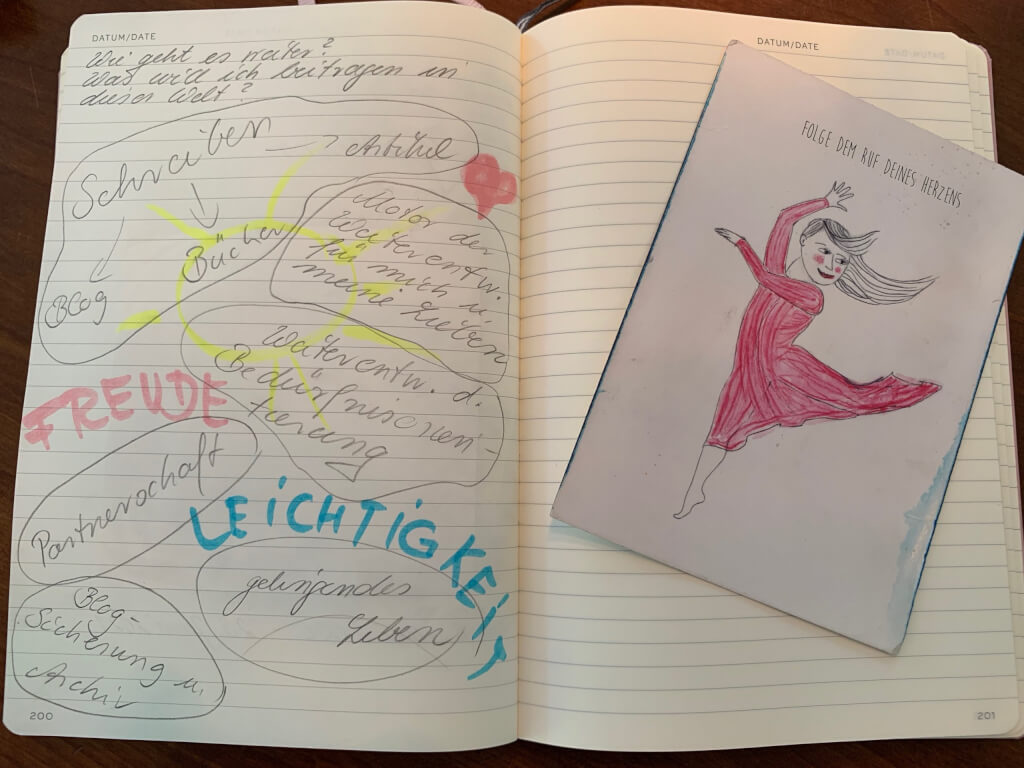 DATUM/DATE
Wie geht es weiter?
Was will ich beitragen in
dieser Welt?
Schreiben
Artikel
Bücher
Blog
Motor der
Weiterentw.
für mich u.
meine Lieben
Weiterentw. d.
Bedürfnisorien-
tierung
FREUDE
Partnerschaft
LEiCHTIGKEiT
gelingendes
Leben
Blog-
Sicherung u.
Archiv
200
DATUM/DATE
FOLGE DEM RUF DEINES HERZENS
201